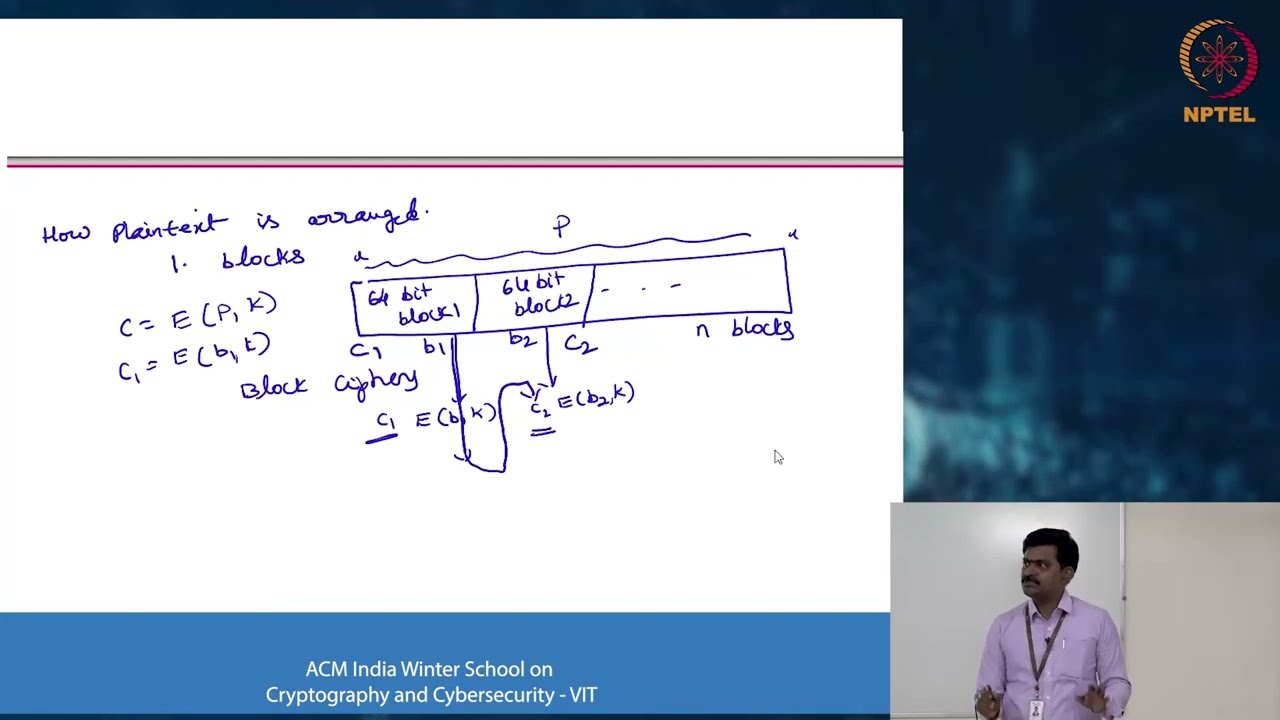 NPTEL
How Plaintext is arranged.
1. blocks
P
64 bit block1
64 bit block2
- . -
n blocks
C = E (P, K)
C1 = E (b1, K)
C1 b1 b2 C2
Block Ciphers
C1 E(b1, K)
C2 E(b2, K)
ACM India Winter School on
Cryptography and Cybersecurity - VIT